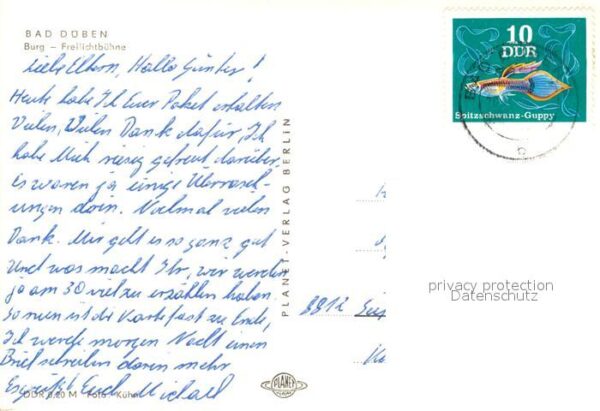 BAD DÜBEN
Burg – Freilichtbühne
Liebe Eltern, Hallo Günter!
Heute habe Ich Euer Paket erhalten
Vielen, Vielen Dank dafür, Ich
habe Mich riesig gefreut darüber,
es waren ja einige Überrasch-
ungen darin. Nochmal vielen
Dank. Mir geht es so ganz gut
Und was macht Ihr, wir werden
ja am 30 viel zu erzählen haben.
So nun ist die Karte fast zu Ende,
Ich werde morgen Nacht einen
Brief schreiben darin mehr
Es grüßt Euch Michael
DDR 0,20 M Foto: Kühn
PLANET-VERLAG BERLIN
PLANET
VERLAG
10
DDR
Spitzschwanz-Guppy
8812
privacy protection
Datenschutz